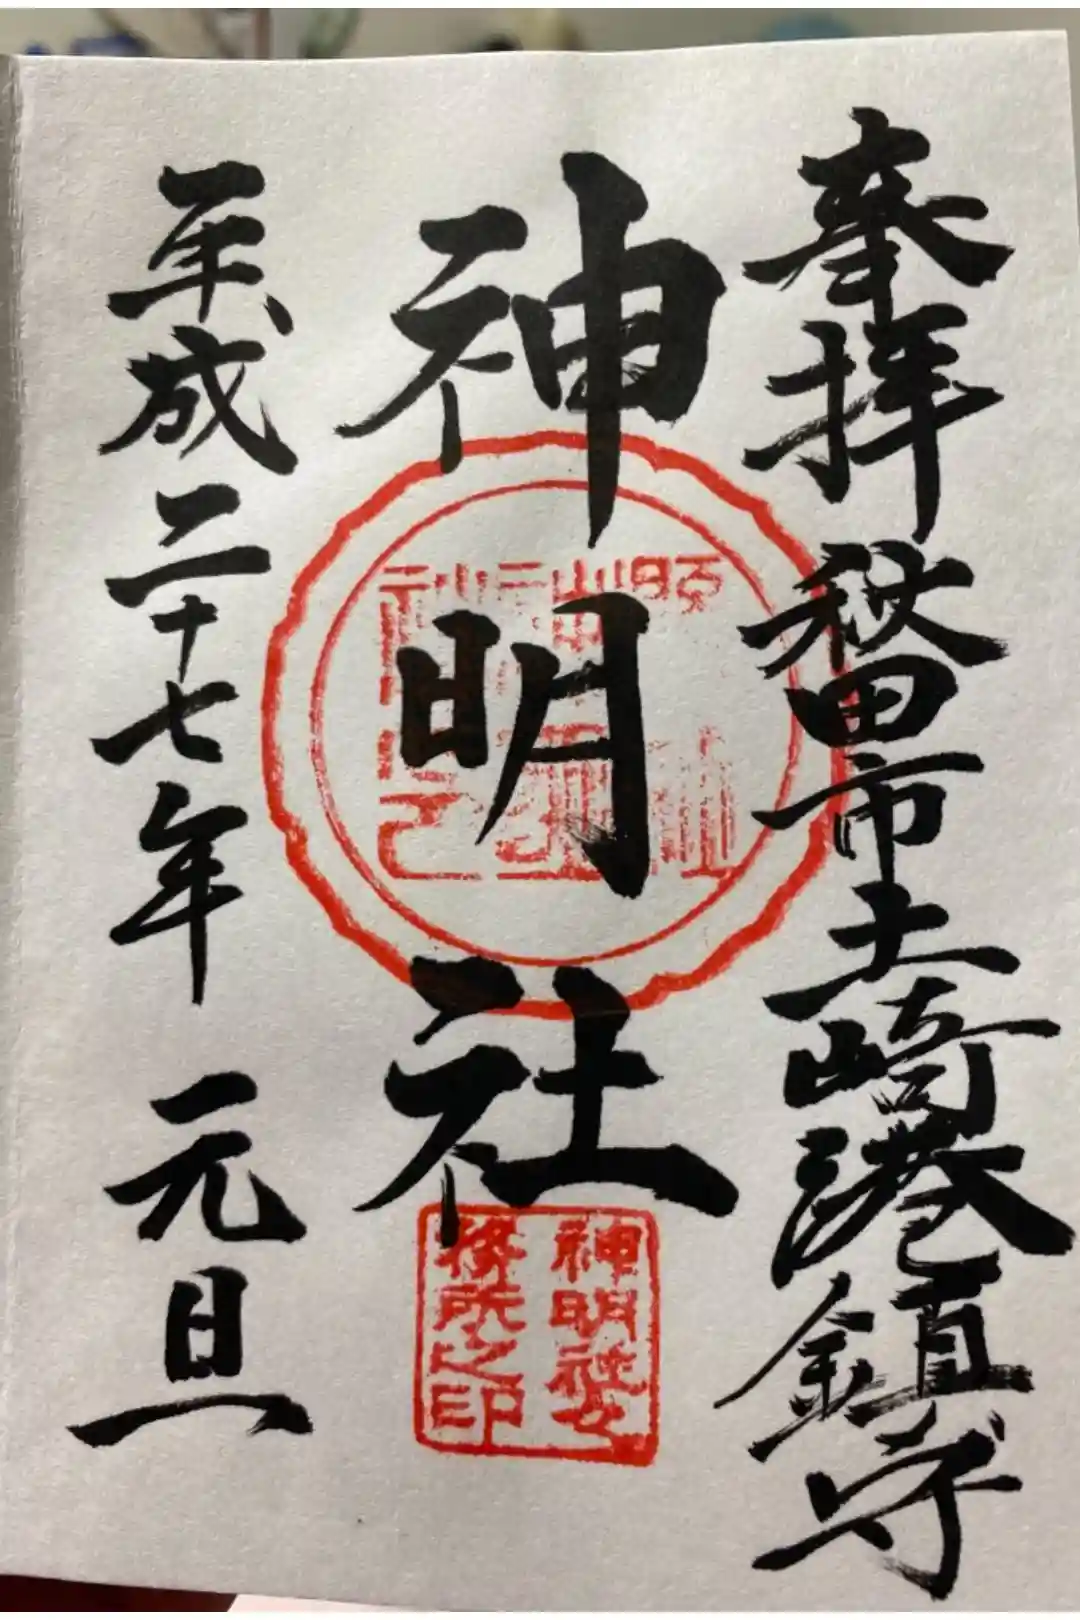 奉拝 秋田市土崎港鎮守
神明社
平成二十七年 元旦
神明社々
務所之印